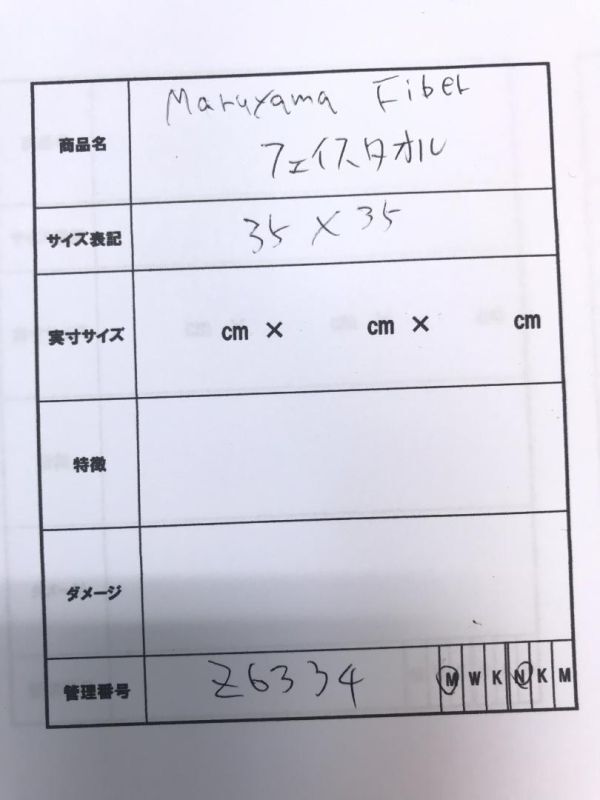 商品名
Maruyama Fiber
フェイスタオル
サイズ表記
35 × 35
実寸サイズ
cm × cm × cm
特徴
ダメージ
管理番号
Z6334
M W K N K M